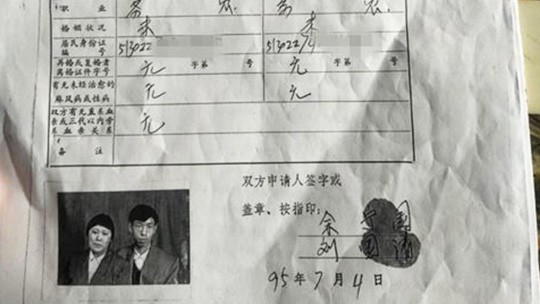 职 业 务 农 务 农
婚姻状况 未 未
居民身份证编号 513022 513022
再婚或复婚者离婚证件字号 无 字第 号 无 字第 号
有无未经治愈的麻风病或性病 无 无
双方有无直系血亲或三代以内旁系血亲关系 无
备 注
双方申请人签字或
盖章、按指印:
余 国
刘 国
95年7月4日